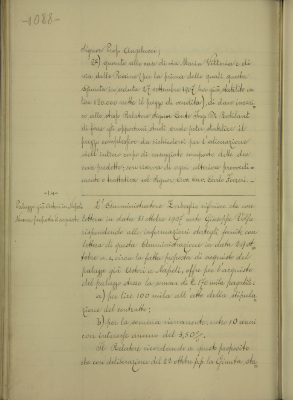 1088
Signor Prof. Angelucci;
2°) quanto alle case di via Maria Vittoria e di
via delle Rosine (per la prima delle quali questa
in seduta 27 settembre 1907 ha già stabilito in
lire 120.000 netto il prezzo di vendita), di dare incari-
co allo stesso Relatore Signor Conte Avv.
di fare gli opportuni studi onde poter stabilire il
prezzo complessivo da richiedersi per l'alienazione
dell'intero corpo di composto delle due
case predette, con riserva di ogni ulteriore provvedi-
mento e trattativa col Signor
- 14 -
Palazzo già Asteri in Napoli
Nuova proposta d'acquisto
L'Amministratore riferisce che con
lettera in data 11 ottobre 1907 certo Giuseppe
rispondendo alle informazioni dategli con
lettera di questa Amministrazione in data
circa la fatta proposta di acquisto del
palazzo già Asteri a Napoli, offre per l'acquisto
del palazzo stesso la somma di L. 170 mila pagabili:
a) per lire 100 mila all'atto della stipula-
zione del contratto;
b) per la somma rimanente, entro 10 anni
con interesse annuo del
Il Relatore ricordando a questo proposito
che con deliberazione del 22 ottobre la Giunta